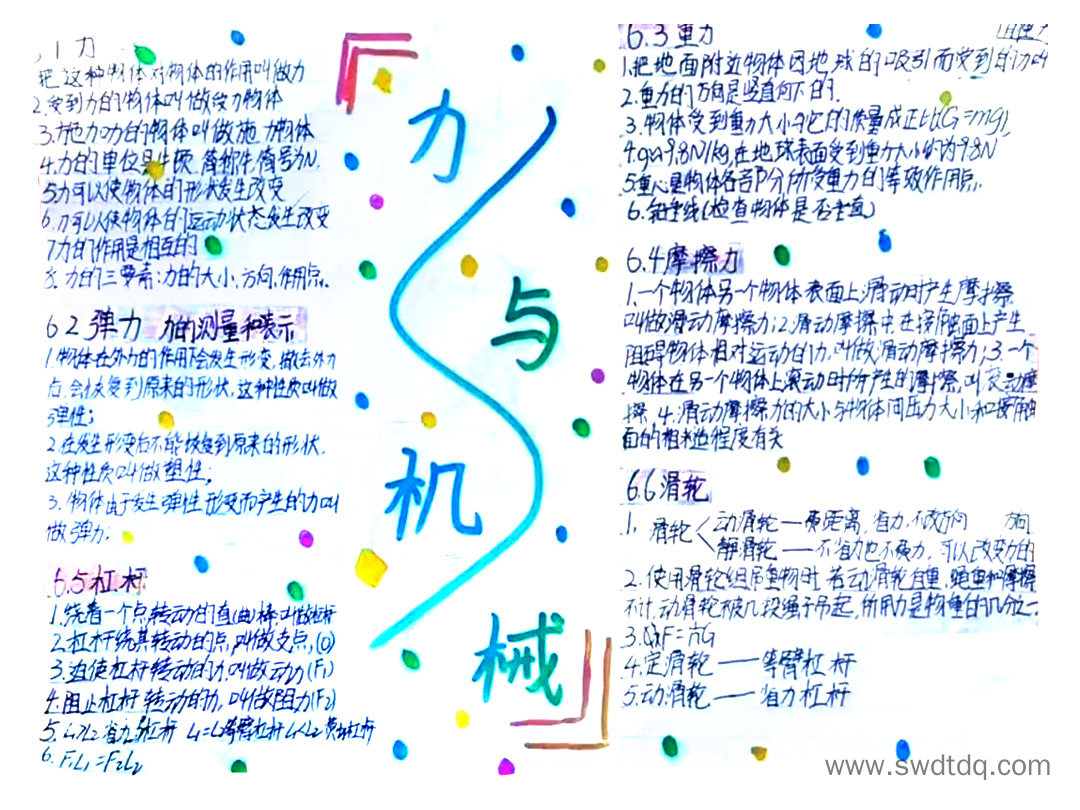 .1 力
把这种物体对物体的作用叫做力
2.受到力的物体叫做受力物体
3.施力的物体叫做施力物体
4.力的单位是牛顿,简称牛,符号为N.
5力可以使物体的形状发生改变
6.力可以使物体的运动状态发生改变
7力的作用是相互的
8.力的三要素:力的大小、方向、作用点.
6.2弹力 力的测量和表示
1.物体在外力的作用下会发生形变,撤去外力
后,会恢复到原来的形状,这种性质叫做
弹性;
2.在发生形变后不能恢复到原来的形状,
这种性质叫做塑性;
3.物体由于发生弹性形变而产生的力叫
做弹力;
6.5杠杆
1.绕着一个点转动的直(曲)棒,叫做杠杆
2.杠杆绕其转动的点,叫做支点,(O)
3.迫使杠杆转动的力,叫做动力(F₁)
4.阻止杠杆转动的力,叫做阻力(F₂)
5.L₁>L₂省力杠杆 L₁=L₂等臂杠杆 L₁<L₂费力杠杆
6.F₁L₁=F₂L₂
力
与
机
械
6.3重力
1.把地面附近物体因地球的吸引而受到的力叫
2.重力的方向是竖直向下的.
3.物体受到重力大小与它的质量成正比(G=mg)
4.g≈9.8N/kg,在地球表面受到重力大小约为9.8N
5.重心是物体各部分所受重力的等效作用点.
6.铅垂线(检查物体是否垂直)
6.4摩擦力
1.一个物体另一个物体表面上滑动时产生摩擦
叫做滑动摩擦力;2.滑动摩擦中,在接触面上产生
阻碍物体相对运动的力.叫做滑动摩擦力;3.一个
物体在另一个物体上滚动时所产生的摩擦,叫滚动摩
擦.4.滑动摩擦力的大小与物体间压力大小和接触
面的粗糙程度有关
6.6滑轮
1.滑轮 动滑轮—费距离,省力,不改方向 方向
静滑轮——不省力也不费力,可以改变力的
2.使用滑轮组吊重物时,若动滑轮自重,绳重和摩擦
不计,动滑轮被几段绳子吊起,所用力是物重的几分之一.
3.F=G
4.定滑轮——等臂杠杆
5.动滑轮——省力杠杆
www.swdtdq.com